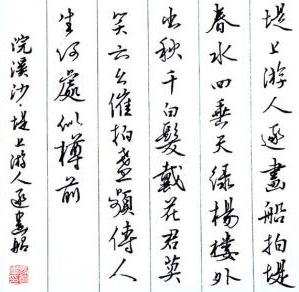 堤上游人逐畫船拍堤
春水四垂天綠楊樓外
出秋千白髮戴花君莫
笑六么催拍盞頻傳人
生何處似樽前
浣溪沙·堤上游人逐畫船